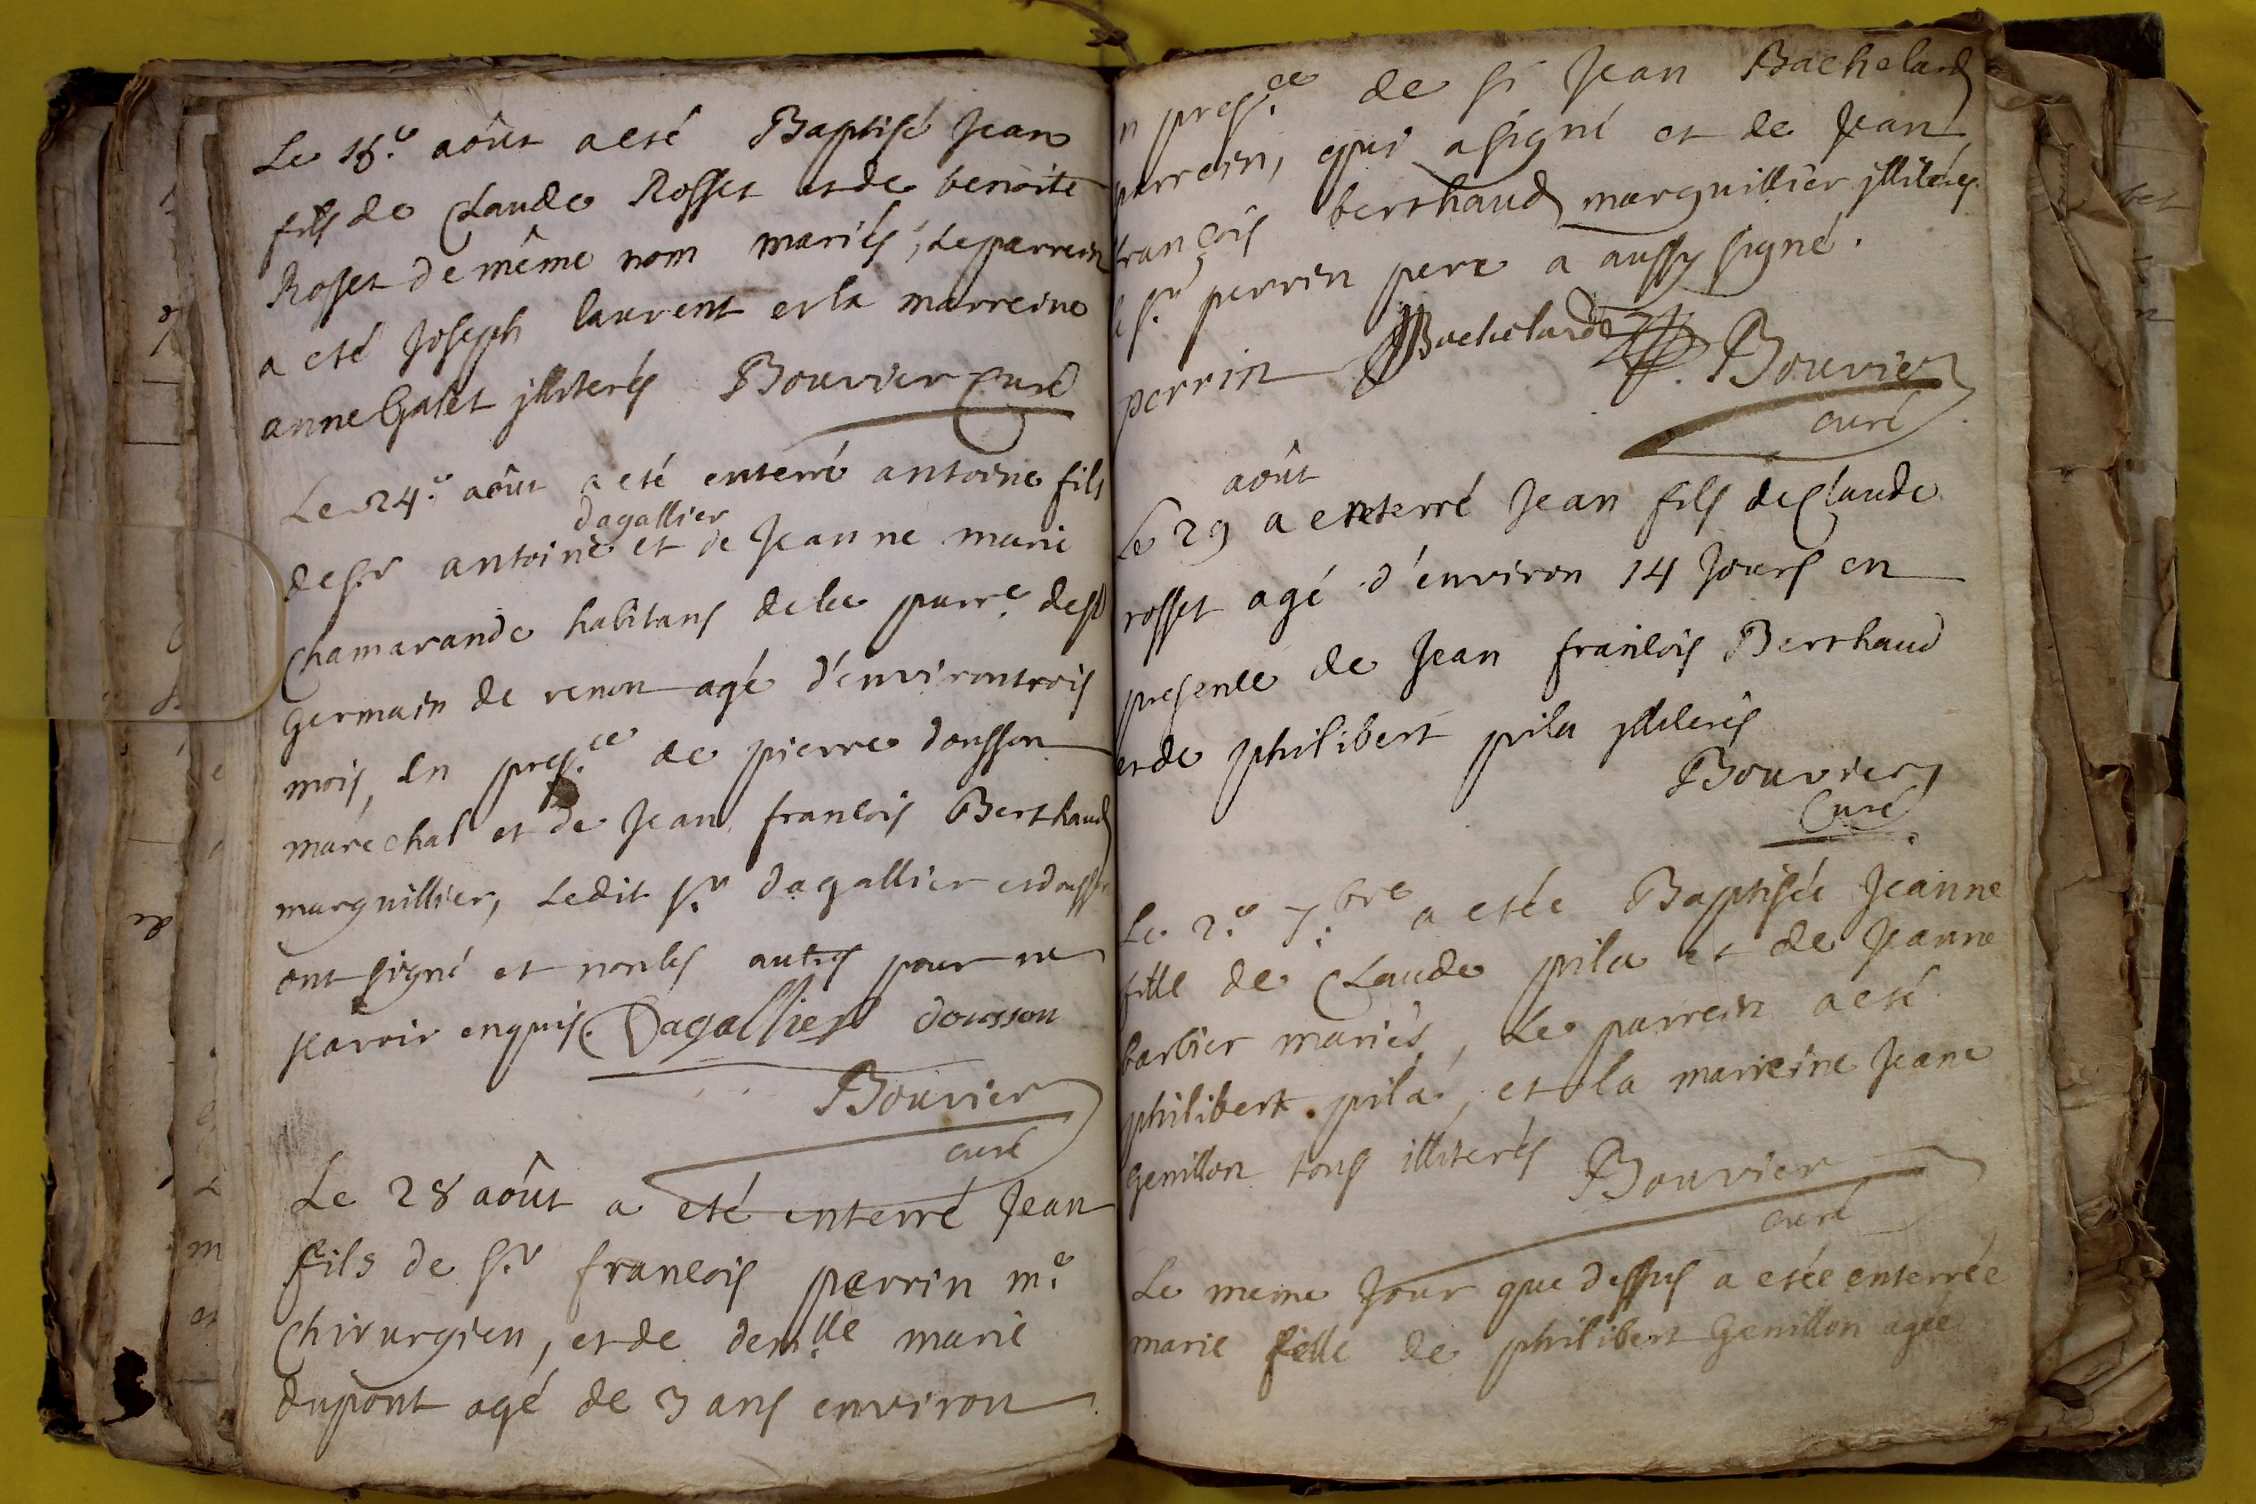 Le 16.e aôut a eté Baptisé Jean
fils de Claude Rosset et de benoite
Rosset de même nom mariés, le parrein
a eté Joseph laurent et la marreine
anne Galet jlliterés Bouvier Curé
Le 24.e aôut a eté enterré antoine fils
dagallier
de Sr antoine et de Jeanne marie
Chamarande habitans de la parr.e de St
germain de renon agé d'environ trois
mois, en pres.ce de pierre dousson
maréchal et de Jean francois Berthaud
marguillier, Ledit S.r dagallier et dousson
ont signé et non les autres pour ne
scavoir enquis. Dagallier dousson
Bouvier
curé
Le 28 aôut a eté enterré Jean
fils de S.r francois perrin m.e
Chirurgien, et de dem.lle marie
dupont agé de 3 ans environ
n pres.ce de sr Jean Bachelard
parrein, qui a signé et de Jean
françois berthaud marguillier jlliterés.
le S.r perrin pere a aussy signé.
perrin Bachelard Bouvier
curé
août
Le 29 a enterré Jean fils de Claude
rosset agé d'environ 14 Jours en
presence de Jean francois Berthaud
et de philibert pila jlliterés
Bouvier
Curé
Le 2.e 7.bre a etée Baptisée Jeanne
fille de Claude pila et de Jeanne
barbier mariés, Le parrein a eté
philibert pila, et la marreine Jeane
Genillon tous illiterés Bouvier
curé
Le meme Jour que dessus a etée enterrée
marie fille de philibert Genillon agée